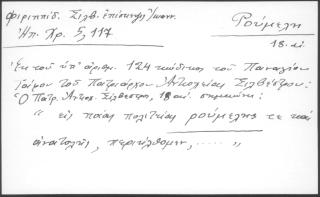 Φιλιππίδ. Σιλβ. ἐπίσκεψη
Ἠπ. Χρ. 5, 117
Ρούμελη
18. αἰ.
Ἐκ τοῦ ὑπ' ἀριθμ. 124 κώδικος τοῦ Παναγίου
Τάφου τοῦ Πατριάρχου Ἀντιοχείας Σιλβέστρου:
Ὁ Πατρ. Ἀντιοχ. Σιλβέστρος, 18 αἰ. σημειώνει:
" εἰς πᾶσαν πολιτείαν ρούμελης τε καὶ
ἀνατολῆς, περιήλθομεν, ..... "